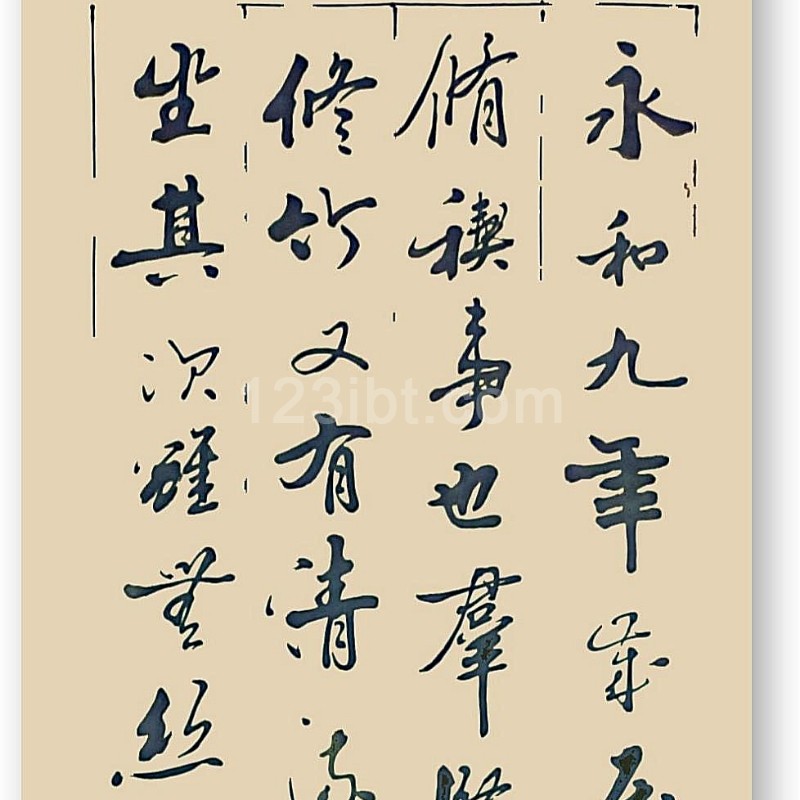 永和九年歲
脩稧事也羣賢
修竹又有清流
坐其次雖無絲
123ibt.com